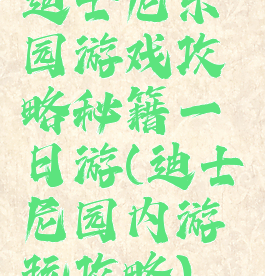 迪士尼乐
园游戏攻
略秘籍一
日游(迪士
尼园内游
玩攻略)